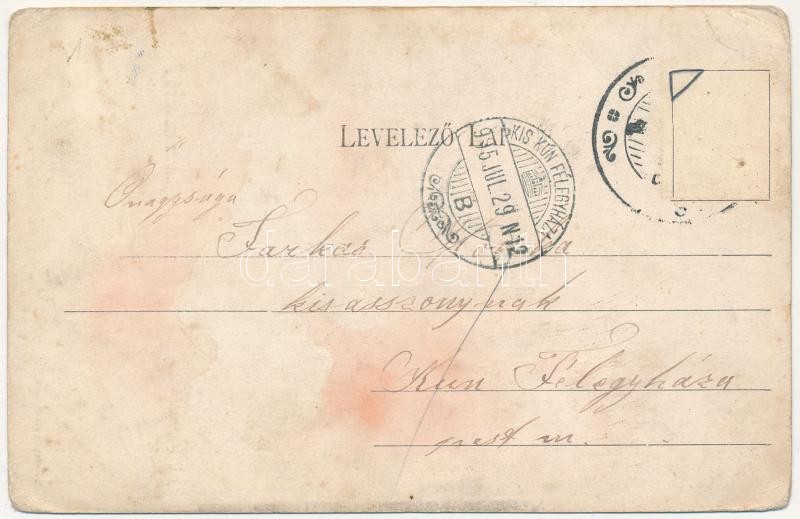 LEVELEZŐ-LAP
KIS KUN FÉLEGYHÁZA
905 JUL. 29 N12
B
Őnagysága
Farkas
kisasszonynak
Kun Félegyháza
pest m.
darabanth